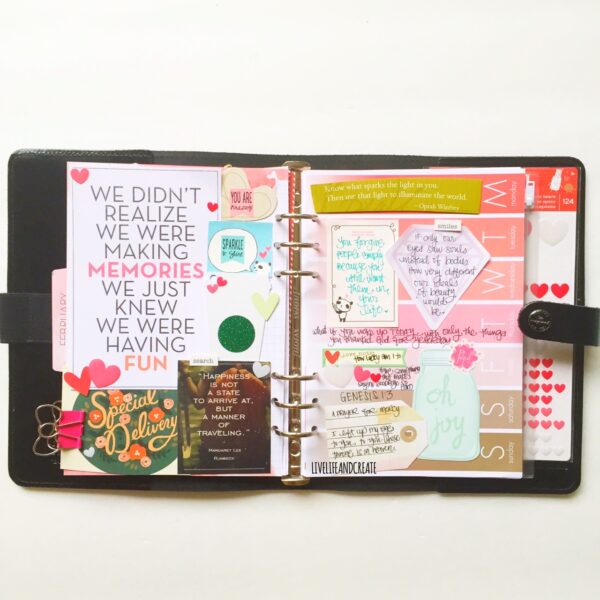 WE DIDN'T
REALIZE
WE WERE
MAKING
MEMORIES
WE JUST
KNEW
WE WERE
HAVING
FUN
YOU ARE
SPARKLE
& Shine
FEBRUARY
search
Special
Delivery
"HAPPINESS
IS NOT
A STATE
TO ARRIVE
AT,
BUT
A MANNER
OF
TRAVELING."
MARGARET LEE
RUNBECK
Know what sparks the light in you.
Then use that light to illuminate the world.
- Oprah Winfrey
You forgive
people simply
because you
still want
them in
your
life.
smiles
if only our
eyes saw souls
instead of bodies
how very different
our ideals
of beauty
would
be.
what if you woke up today with only the things
you thanked God for yesterday
GENESIS 1:3
a prayer for
I lift up my eyes
to you, to you whose
throne is in heaven.
oh
joy
M
monday
T
tuesday
W
T
F
S
saturday
S
sunday
124
LIVELIFEANDCREATE